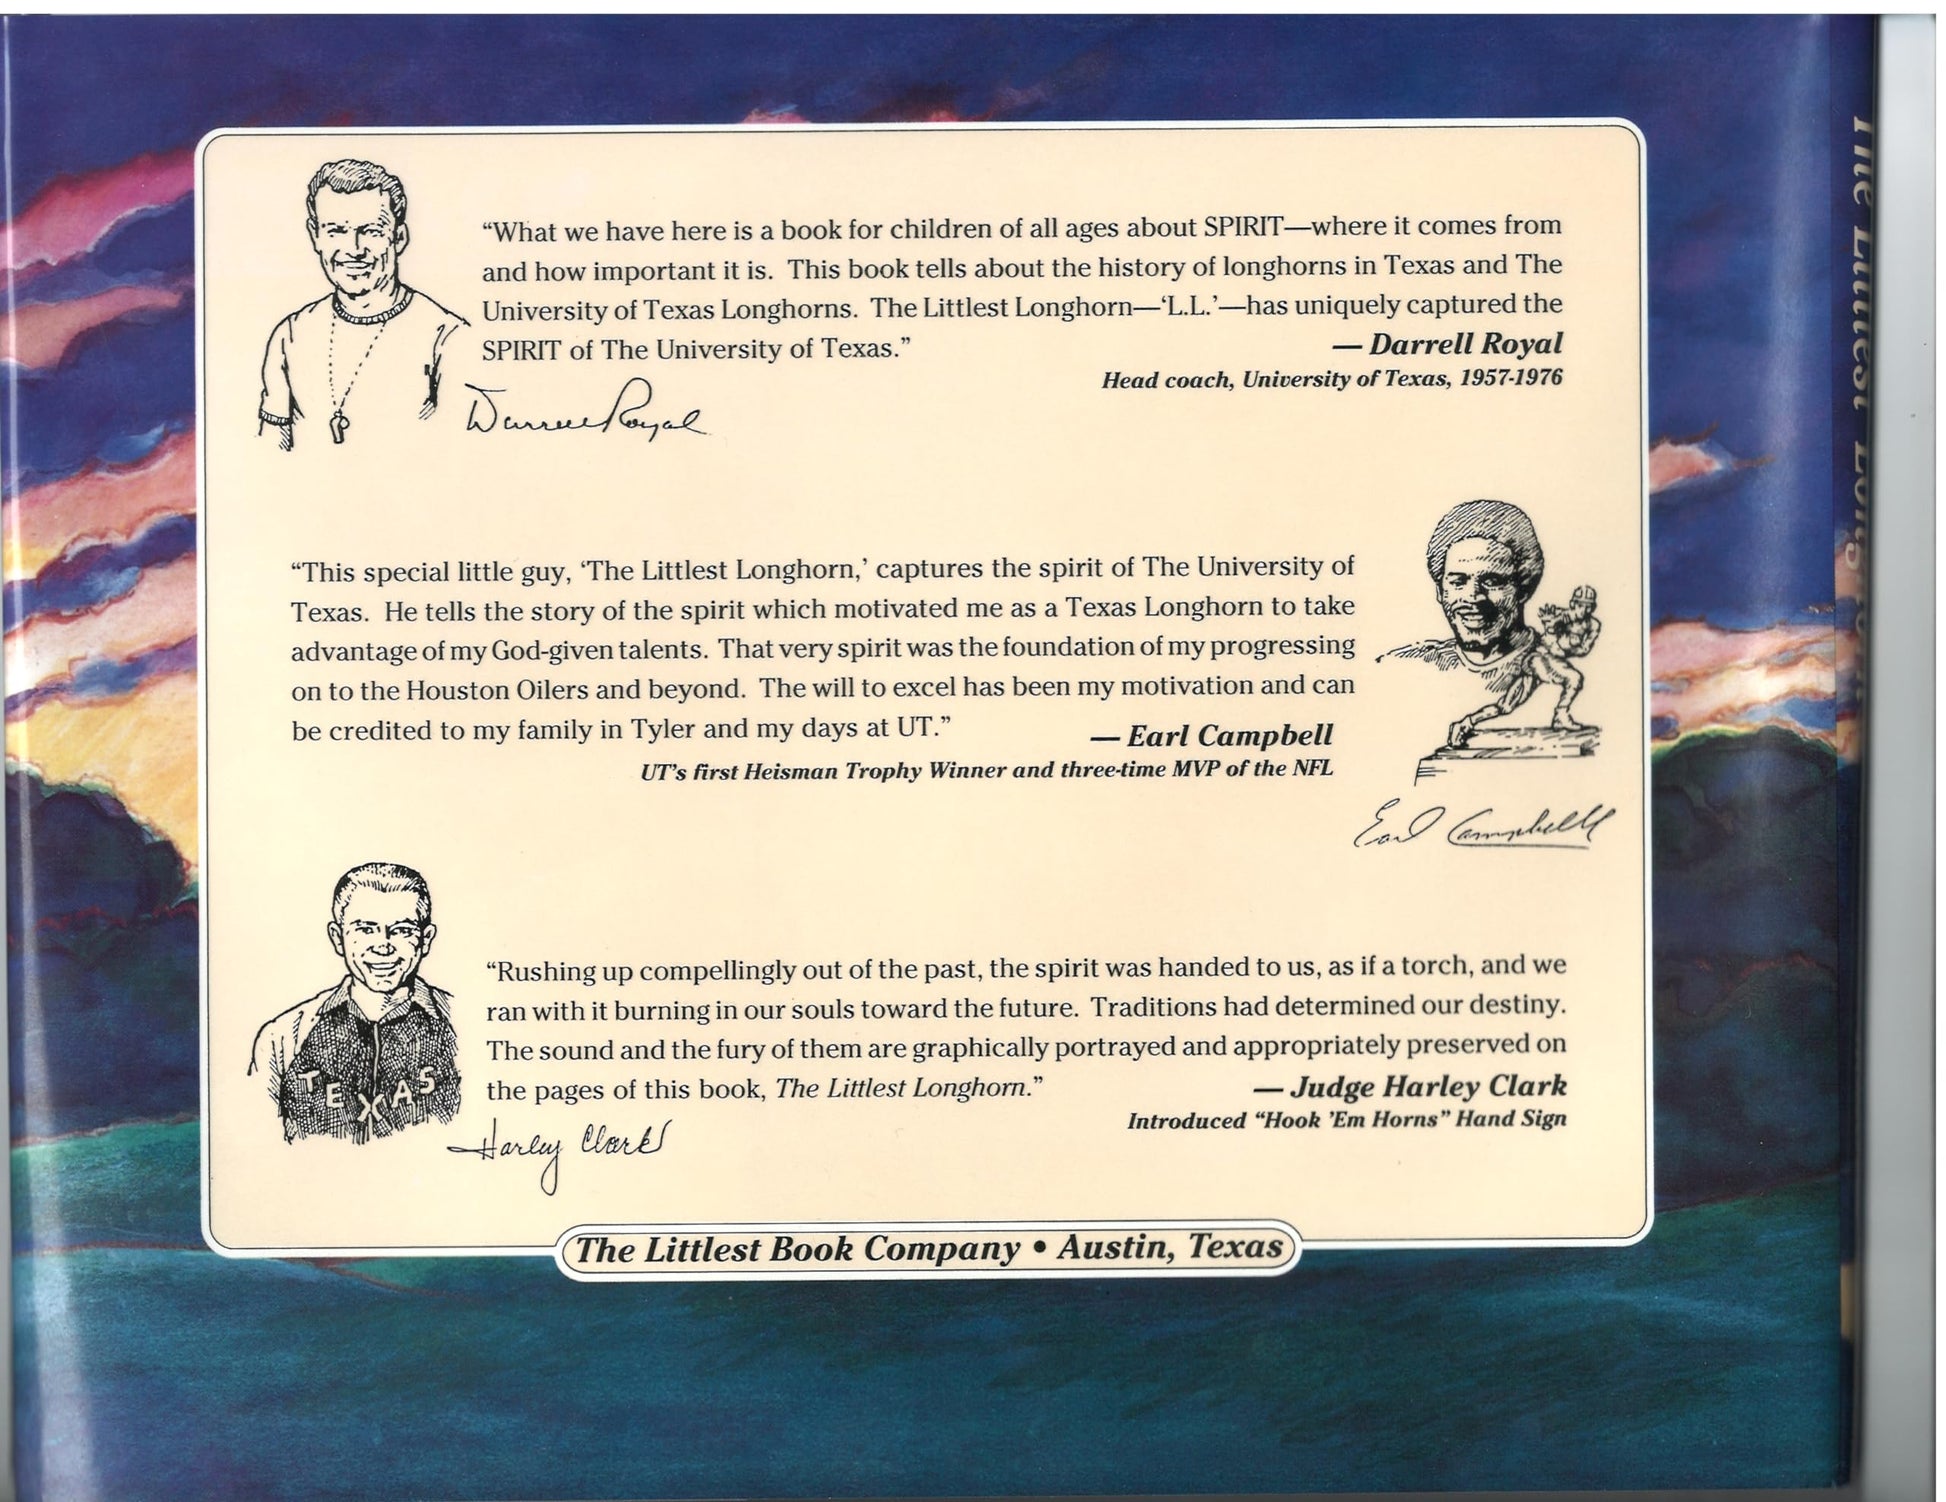 “What we have here is a book for children of all ages about SPIRIT—where it comes from
and how important it is.  This book tells about the history of longhorns in Texas and The
University of Texas Longhorns.  The Littlest Longhorn—‘L.L.’—has uniquely captured the
SPIRIT of The University of Texas.”
— Darrell Royal
Head coach, University of Texas, 1957-1976
Darrell Royal
“This special little guy, ‘The Littlest Longhorn,’ captures the spirit of The University of
Texas.  He tells the story of the spirit which motivated me as a Texas Longhorn to take
advantage of my God-given talents.  That very spirit was the foundation of my progressing
on to the Houston Oilers and beyond.  The will to excel has been my motivation and can
be credited to my family in Tyler and my days at UT.”
— Earl Campbell
UT’s first Heisman Trophy Winner and three-time MVP of the NFL
Earl Campbell
“Rushing up compellingly out of the past, the spirit was handed to us, as if a torch, and we
ran with it burning in our souls toward the future.  Traditions had determined our destiny.
The sound and the fury of them are graphically portrayed and appropriately preserved on
the pages of this book, The Littlest Longhorn.”
— Judge Harley Clark
Introduced “Hook ’Em Horns” Hand Sign
TEXAS
Harley Clark
The Littlest Book Company • Austin, Texas
The Littlest Longhorn